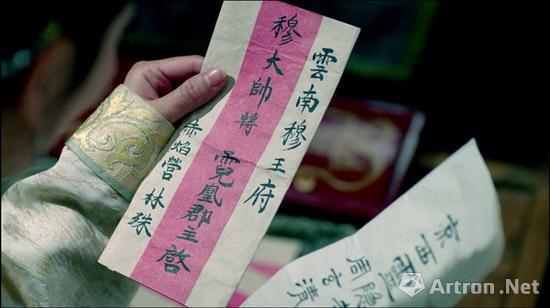 雲南穆王府
穆大帥轉霓凰郡主啓
赤焰營林殊
京西靈隱
周玄清
Artron.Net